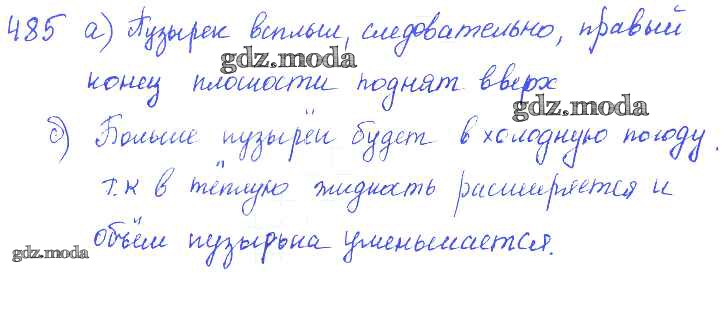 485 а) Пузырек всплыл, следовательно, правый
gdz.moda
конец плоскости поднят вверх
gdz.moda
б) Больше пузырёк будет в холодную погоду,
т.к в тёплую жидкость расширяется и
объём пузырька уменьшается.
gdz.moda